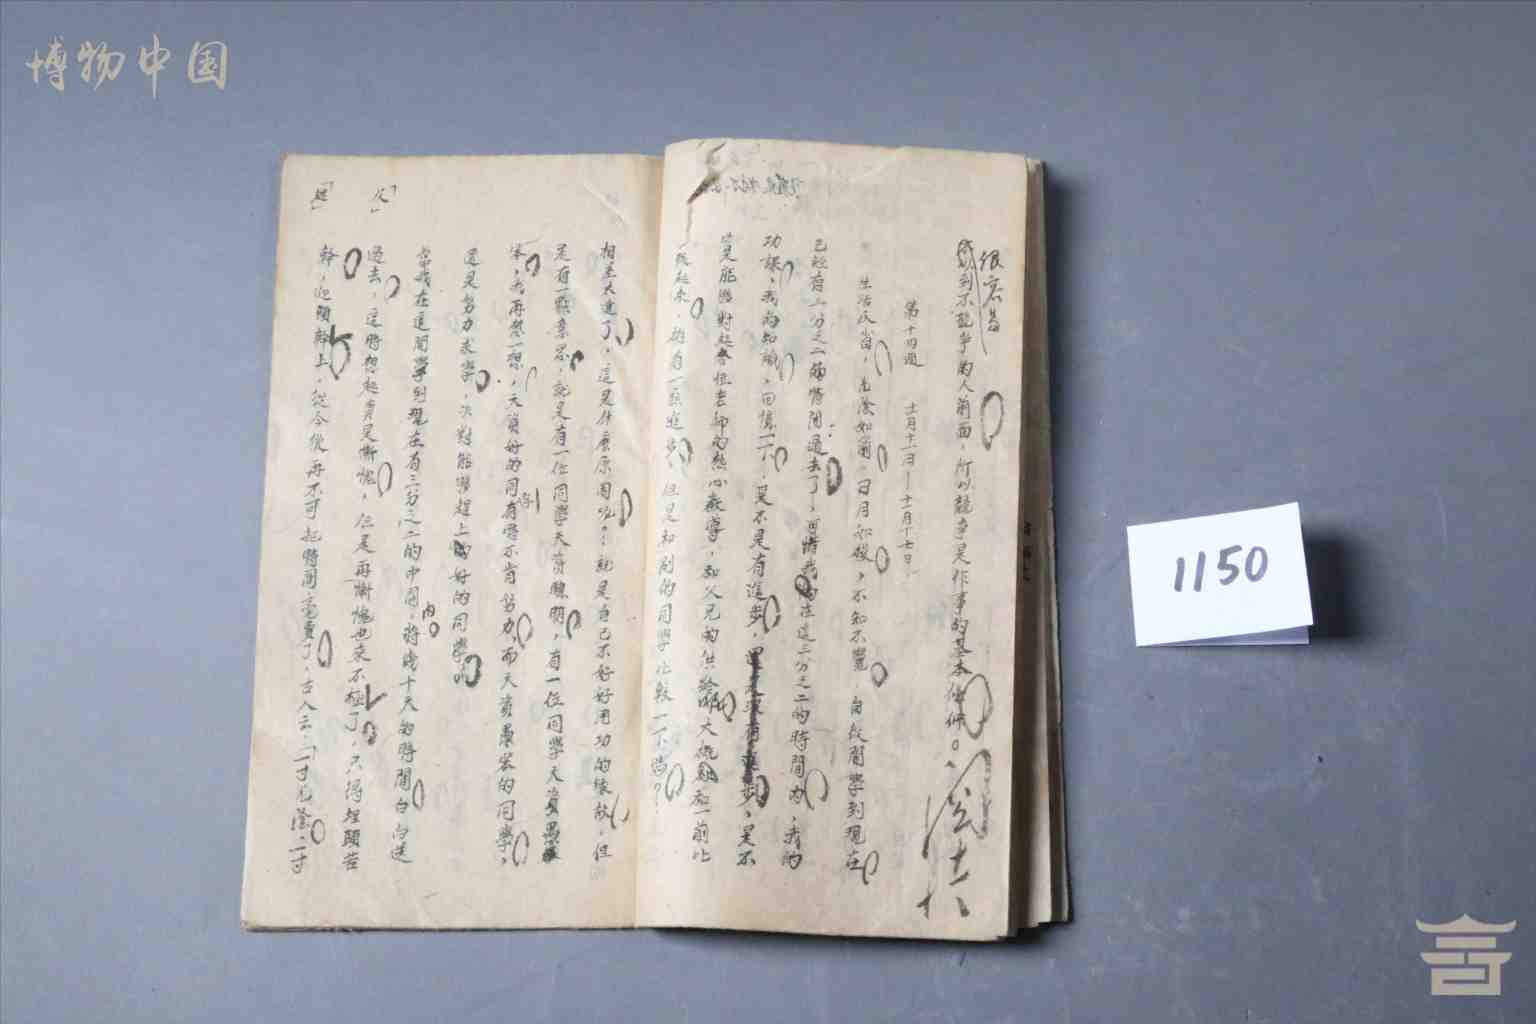 博物中国
1150
很容易
感到不競爭的人前面，所以競爭是作事的基本條件。
閱 十六
第十四週　十二月十一日—十二月十七日
生活反省，光陰如箭，日月如梭，不知不覺，自從開學到現在
已經有三分之二的時間過去了，可惜我的在這三分之二的時間內，我的
功課，我的知識，回憶一下，是不是有進步，是不
是能夠對起各位老師的熱心教導，和父兄的供給啊大概
後起來，稍有一點進步，但是和別的同學比較一下嗎？
相差太遠了，這是什麼原因呢？就是自己不好好用功的緣故，但
是有一點意思，就是有一位同學天資聰明，有一位同學天資愚
笨，我再想一想，天資好的同學有時不肯努力，而天資愚笨的同學，
還是努力求學，決對能夠趕上的好的同學的
當我在這開學到現在有三分之二的中間，將幾十天的時間白白送
過去，這時想起真是慚愧，但是再慚愧也來不極了，只得埋頭苦
幹，迎頭幹上，從今後再不可把時間荒費了，古人云：「一寸光陰，一寸
內